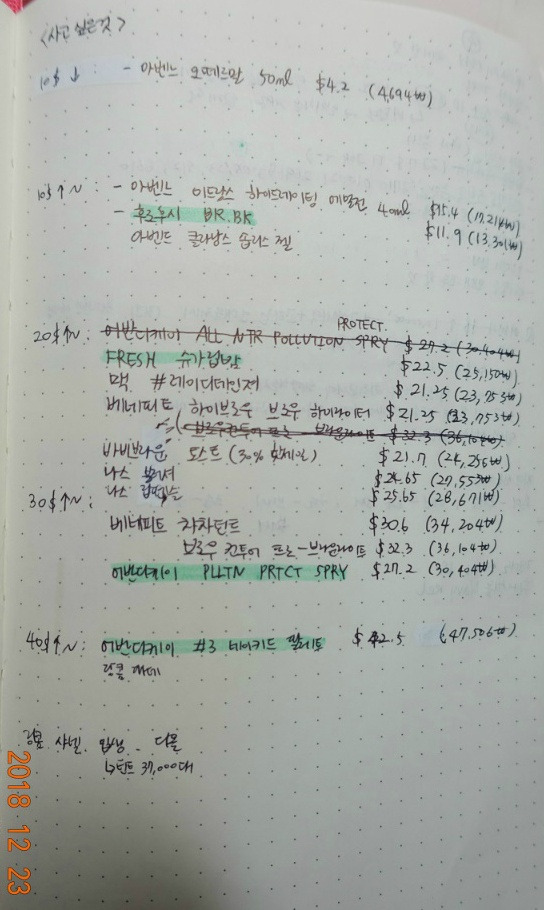 <사고 싶은것>
10$ ↓ - 아벤느 오떼르말 50ml $4.2 (4,694₩)
10$↑~ : - 아벤느 이드랑스 하이드레이팅 에멀전 40ml $15.4 (17,214₩)
- 후로후시 BR.BK $11.9 (13,301₩)
아벤느 클리낭스 솝리스 젤
PROTECT
20$↑~ : 어반디케이 ALL NTR POLLUTION SPRY $27.2 (30,404₩)
FRESH 슈가립밤 $22.5 (25,150₩)
맥 #레이디데인저 $21.25 (23,753₩)
베네피트 하이브로우 브로우 하이라이터 $21.25 (23,753₩)
브로우컨투어 프로 - 브라운라이트 $32.3 (36,104₩)
바비브라운 토스트 (30% 할인) $21.7 (24,256₩)
나스 $24.65 (27,553₩)
30$↑~ : 나스 립펜슬 $25.65 (28,671₩)
베네피트 차차틴트 $30.6 (34,204₩)
브로우 컨투어 프로-브라운라이트 $32.3 (36,104₩)
어반디케이 PLLTN PRTCT SPRY $27.2 (30,404₩)
40$↑~ : 어반디케이 #3 네이키드 팔레트 $42.5 (47,506₩)
랑콤
랑콤 샤넬 입생 디올
↳틴트 37,000대
2018 12 23